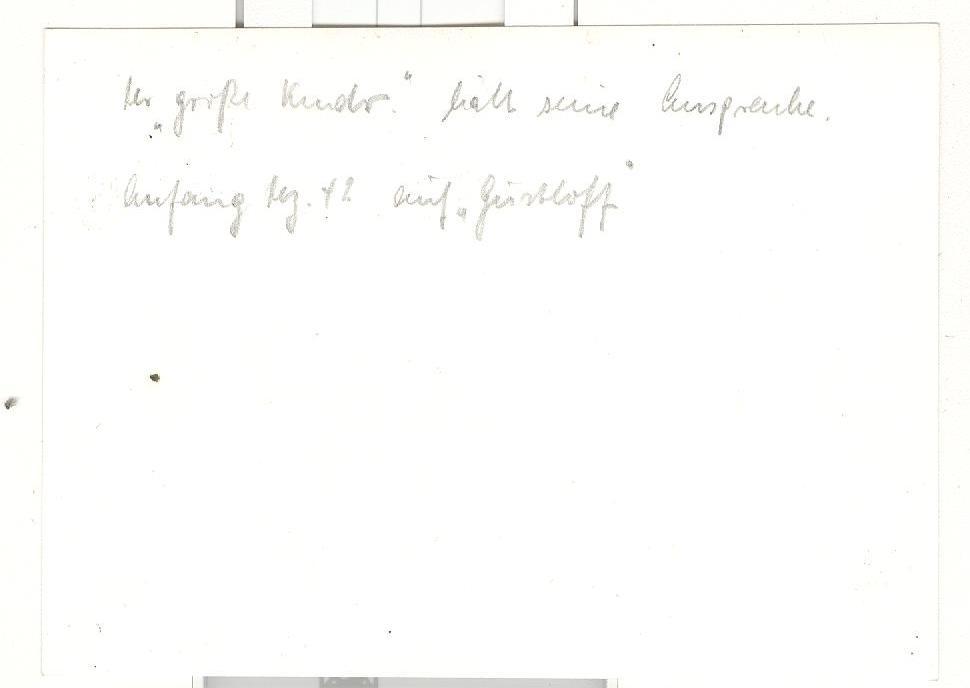 Der „große Kmdr." hält seine Ansprache.
Anfang Dez. 42 auf „Gustloff"